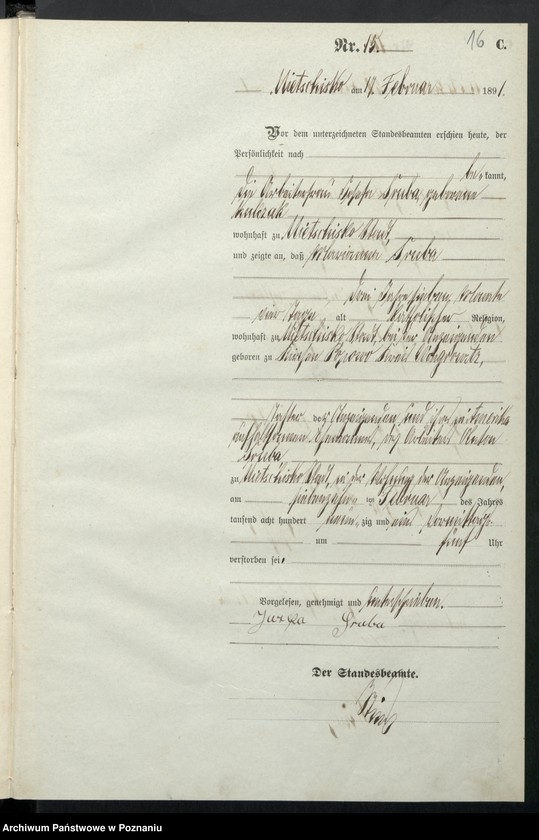 Nr. 15. 16 C.
Mietschisko am 19. Februar 1891.
Vor dem unterzeichneten Standesbeamten erschien heute, der
Persönlichkeit nach
be kannt,
die Arbeiterfrau Josefa Sruba, geborene
wohnhaft zu Mietschisko Stadt,
und zeigte an, daß Marianna Sruba
drei Jahre sieben Monate
vier Tage alt katholischer Religion,
wohnhaft zu Mietschisko Stadt, bei der Anzeigenden
geboren zu Popowo Kreis Wongrowitz,
Tochter der Anzeigenden und ihres in Amerika
Ehemannes, des Arbeiters Anton
Sruba
zu Mietschisko Stadt, in der Wohnung der Anzeigenden,
am siebenzehnten Februar des Jahres
tausend acht hundert neun zig und eins Vormittags
um fünf Uhr
verstorben sei.
Vorgelesen, genehmigt und unterschrieben.
Sruba
Der Standesbeamte.
Archiwum Państwowe w Poznaniu